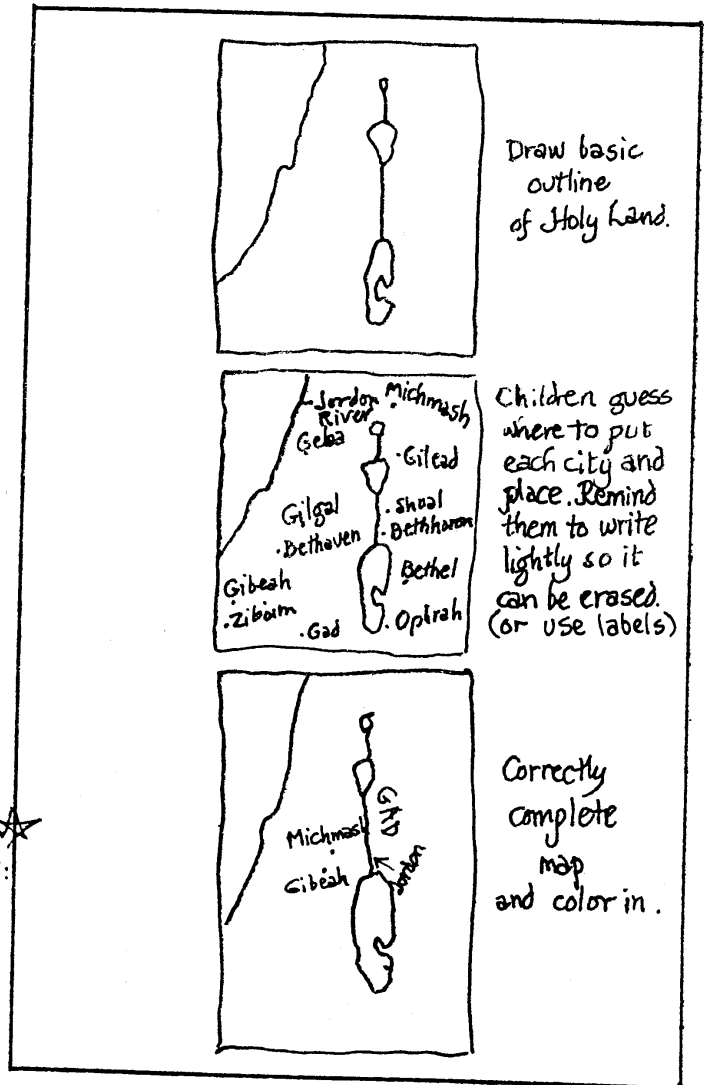 Draw basic
outline
of Holy Land.
Jordon
River
Michmash
Geba
Gilead
Gilgal
Shual
Bethaven
Bethhoron
Bethel
Gibeah
Ziboim
Gad
Ophrah
Children guess
where to put
each city and
place. Remind
them to write
lightly so it
can be erased.
(or use labels)
GAD
Michmash
Gibeah
Jordon
Correctly
complete
map
and color in.